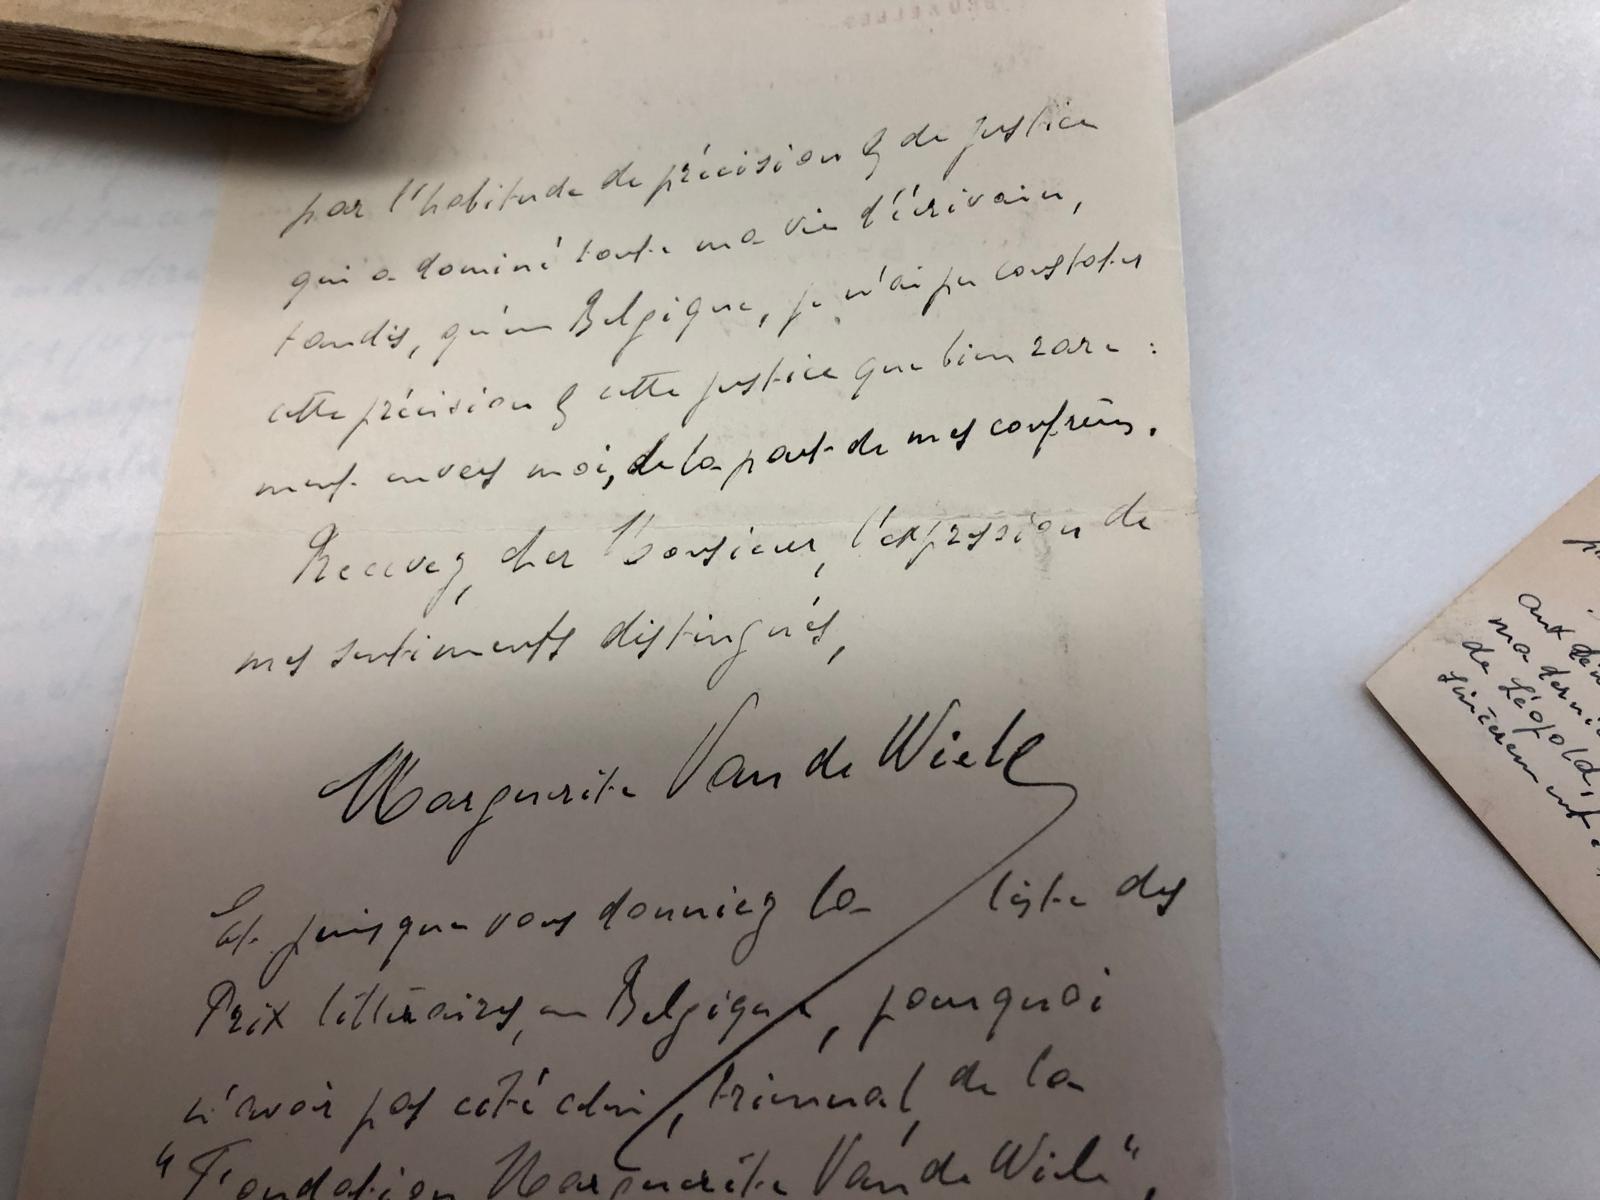 BRUXELLES
par l'habitude de précision & de justice
qui a dominé toute ma vie d'écrivain,
tandis, qu'en Belgique, je n'ai pu constater
cette précision & cette justice que bien rare:
ment envers moi, de la part de mes confrères.
Recevez, cher Monsieur, l'expression de
mes sentiments distingués,
Marguerite Van de Wiele
Et puisque vous donniez la liste des
Prix littéraires, en Belgique, pourquoi
n'avoir pas cité celui, triennal, de la
"Fondation Marguerite Van de Wiele",
ma
de Léopold,